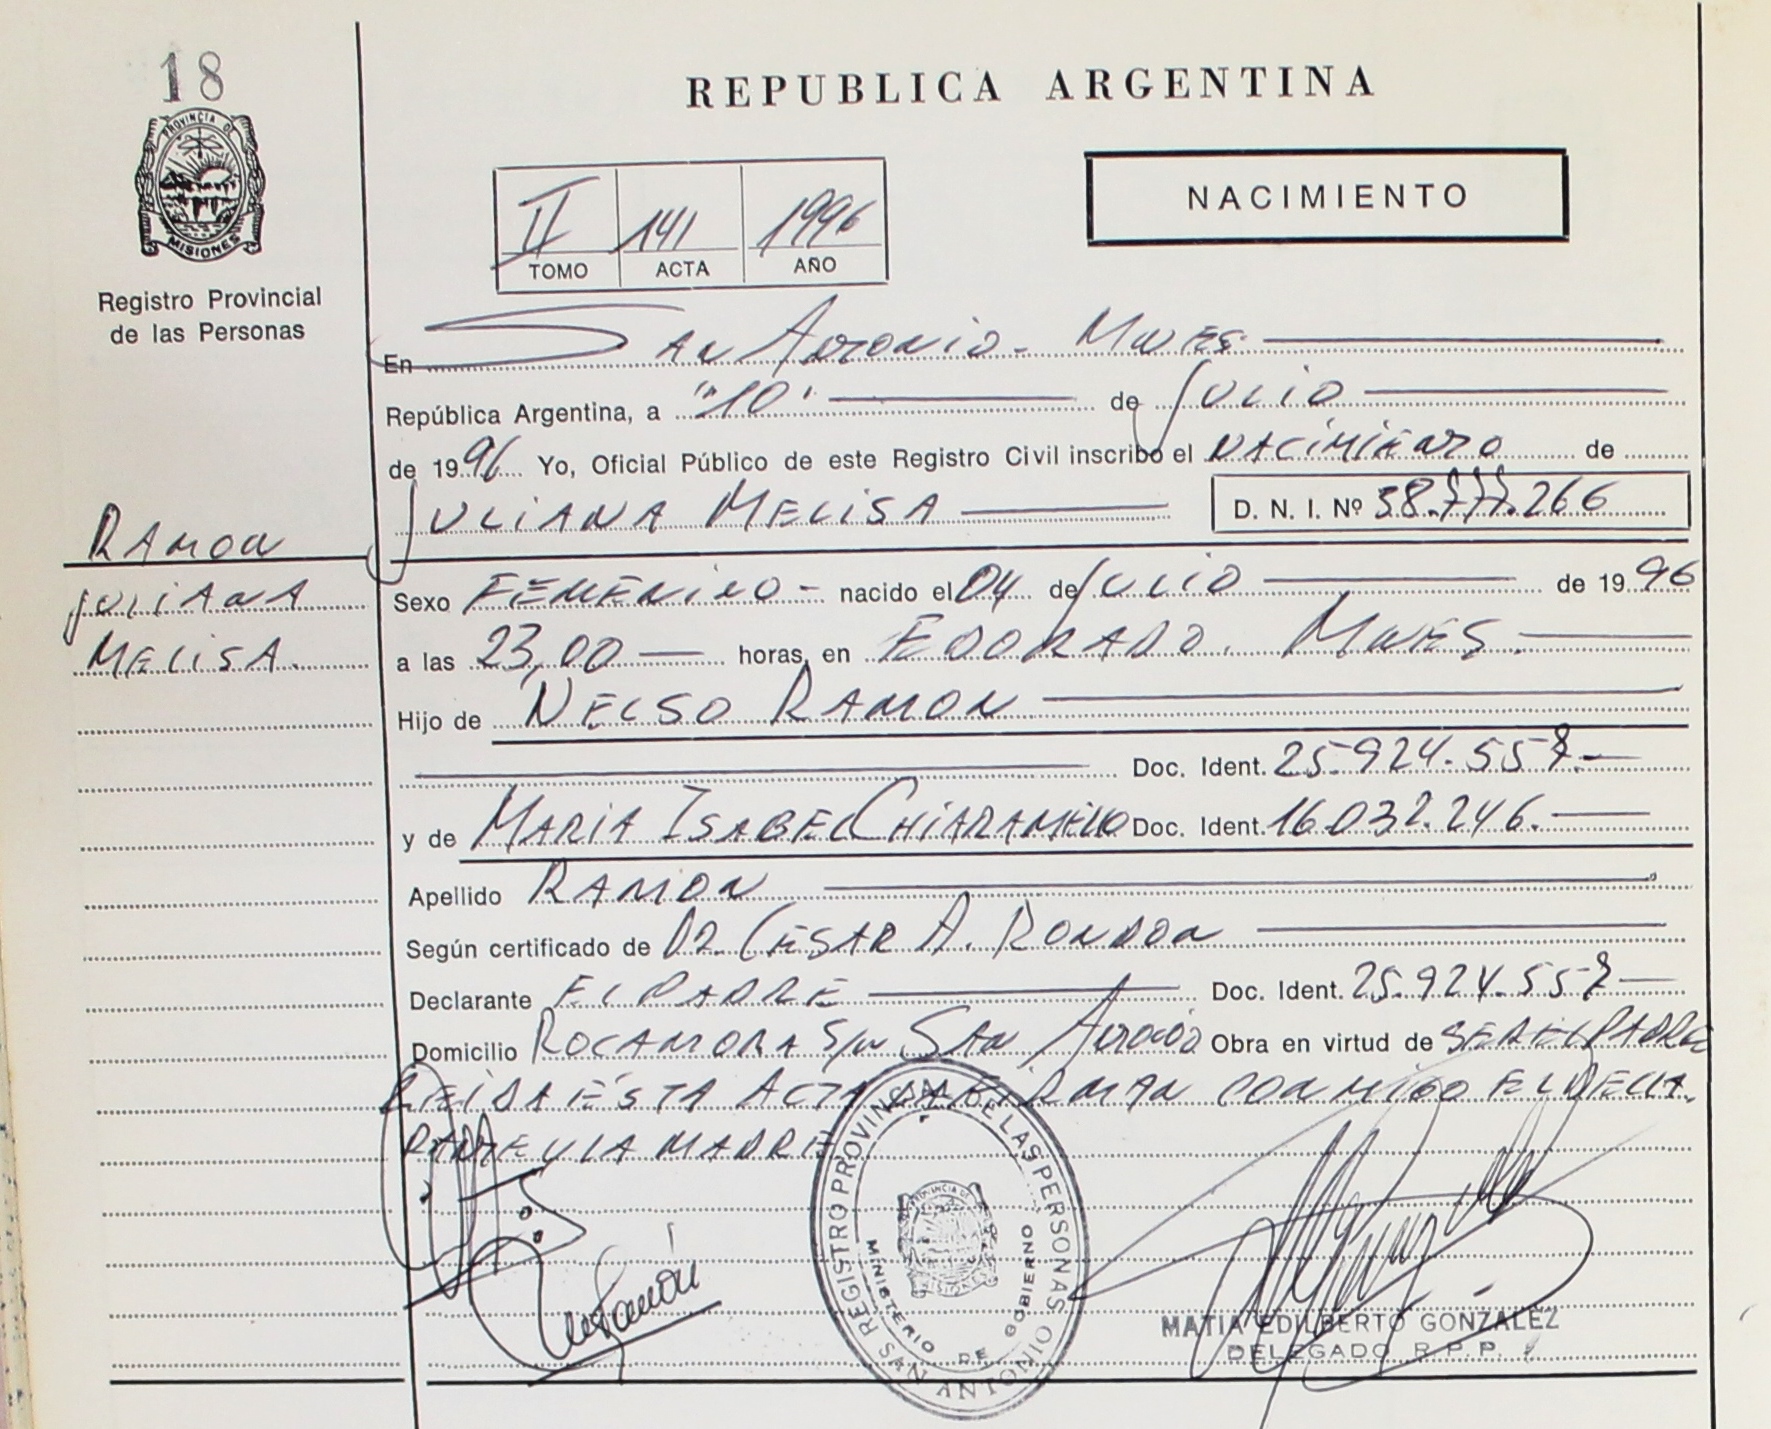 18
PROVINCIA DE
MISIONES
Registro Provincial
de las Personas
REPUBLICA ARGENTINA
NACIMIENTO
II 141 1996
TOMO ACTA AÑO
En SAN ANTONIO - MNES
República Argentina, a "10" de JULIO
de 1996 Yo, Oficial Público de este Registro Civil inscribo el NACIMIENTO de
JULIANA MELISA D. N. I. Nº 38.777.266
RAMON
JULIANA
MELISA.
Sexo FEMENINO - nacido el 04 de JULIO de 1996
a las 23,00 horas, en ELDORADO. MNES.
Hijo de NELSO RAMON
Doc. Ident. 25.924.557.-
y de MARIA ISABEL CHIARAMELLO Doc. Ident. 16.032.246.
Apellido RAMON
Según certificado de DR. CESAR A. RONDON
Declarante EL PADRE Doc. Ident. 25.924.557
Domicilio ROCAMORA S/N SAN ANTONIO Obra en virtud de SER EL PADRE
LEIDA ESTA ACTA LA FIRMAN CON MIGO EL DECLA
RANTE Y LA MADRE
REGISTRO PROVINCIAL DE LAS PERSONAS
MINISTERIO DE GOBIERNO
SAN ANTONIO
MATIA EDILBERTO GONZALEZ
DELEGADO R.P.P.